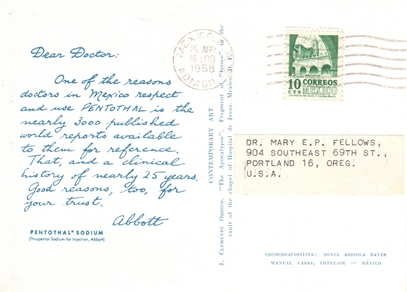 Dear Doctor:
One of the reasons
doctors in Mexico respect
and use PENTOTHAL is the
nearly 3000 published
world reports available
to them for reference.
That, and a clinical
history of nearly 25 years.
Good reasons, too, for
your trust.
Abbott
PENTOTHAL® SODIUM
(Thiopental Sodium for Injection, Abbott)
CONTEMPORARY ART
J. Clemente Orozco, "The Apocalypse". Fragment of
vault of the chapel of Hospital de Jesus, Mexico, D. F.
1958
10
CORREOS
DR. MARY E.P. FELLOWS,
904 SOUTHEAST 69TH ST.,
PORTLAND 16, OREG.
U.S.A.
CROMODIAPOSITIVA: SONIA ARREOLA BAYER
MANUEL CASAS, IMPRESOR — MÉXICO